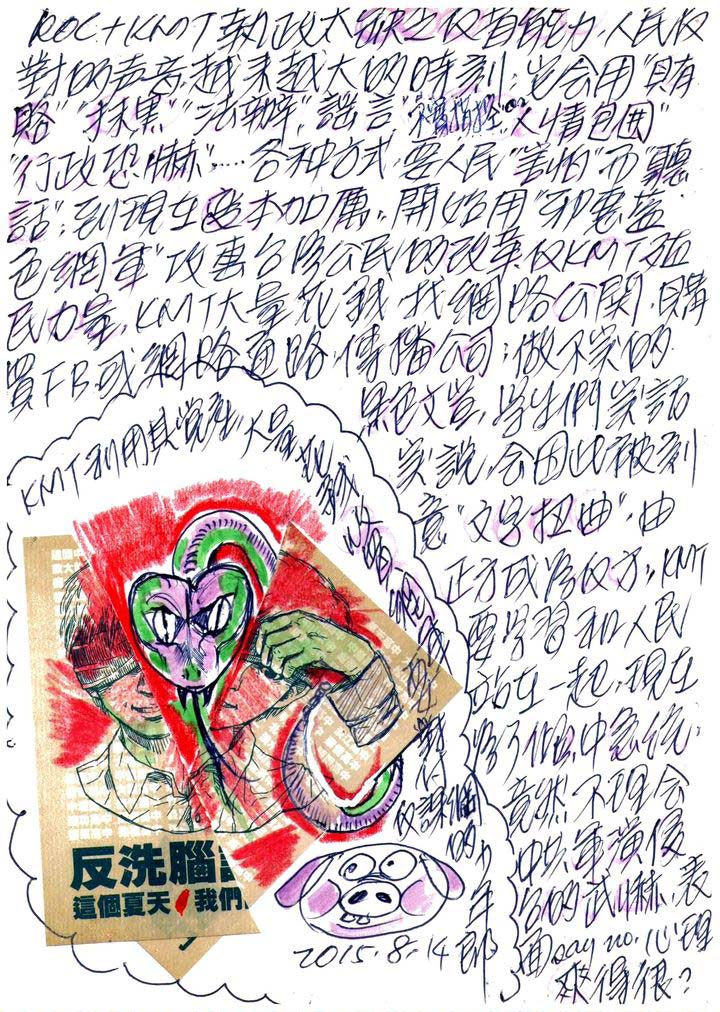 ROC+KMT執政太缺乏政者能力,人民反
對的声音越來越大的時刻;它会用"具有
賂""抹黑""法辦",謠言"不實指控""人情包囲"
"行政恐嚇".....各种方式,要人民"害怕"而"聽
話";到現在變本加厲,開始用"邪惡藍
色網軍"攻擊台湾公民的改革反KMT殖
民力量,KMT大量花錢,找網路公関,購
買FB或網路通路,傳播公司;做不实的
黑色文宣,学生們实話
实說,会因此被刻
意"文字扭曲",由
正方成為反方,KMT
要学習和人民
站在一起,現在
為了傾中急統,
竟然不理会
中共軍演侵
台的武嚇,表
面say no,心理
爽得很?
KMT利用其党產,大量
網軍
對付
反課綱的
少年郎
反洗腦
這個夏天 我們
2015.8.14